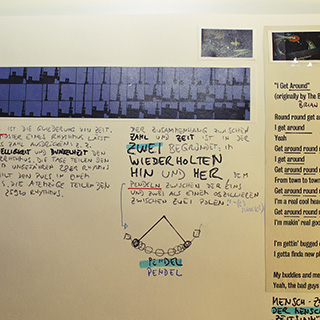 IST DIE GLIEDERUNG VON ZEIT.
EINES RHYTHMUS LÄSST
ZAHL AUSDRÜCKEN Z.B.
HELLIGKEIT UND DUNKELHEIT DEN
RHYTHMUS, DIE TAGE TEILEN DEN
DEN PULS, IN EINEM
DIE ATEMZÜGE TEILEN DEN
25920 RHYTHMUS.
DER ZUSAMMENHANG ZWISCHEN
ZAHL UND ZEIT IST IN DER
ZWEI BEGRÜNDET, IM
WIEDERHOLTEN
HIN UND HER, DEM
PENDELN ZWISCHEN DER EINS
UND ZWEI ALS EINEM OSZILLIEREN
ZWISCHEN ZWEI POLEN.
PENDEL
PENDEL
"I Get Around"
(originally by The B
BRIAN
Round round get aro
I get around
Yeah
Get around round r
I get around
Get around round ro
From town to town
Get around round ro
I'm a real cool head
Get around round ro
I'm makin' real goo
I'm gettin' bugged d
I gotta find a new pl
My buddies and me
Yeah, the bad guys
MENSCH - Z
DER MENSC